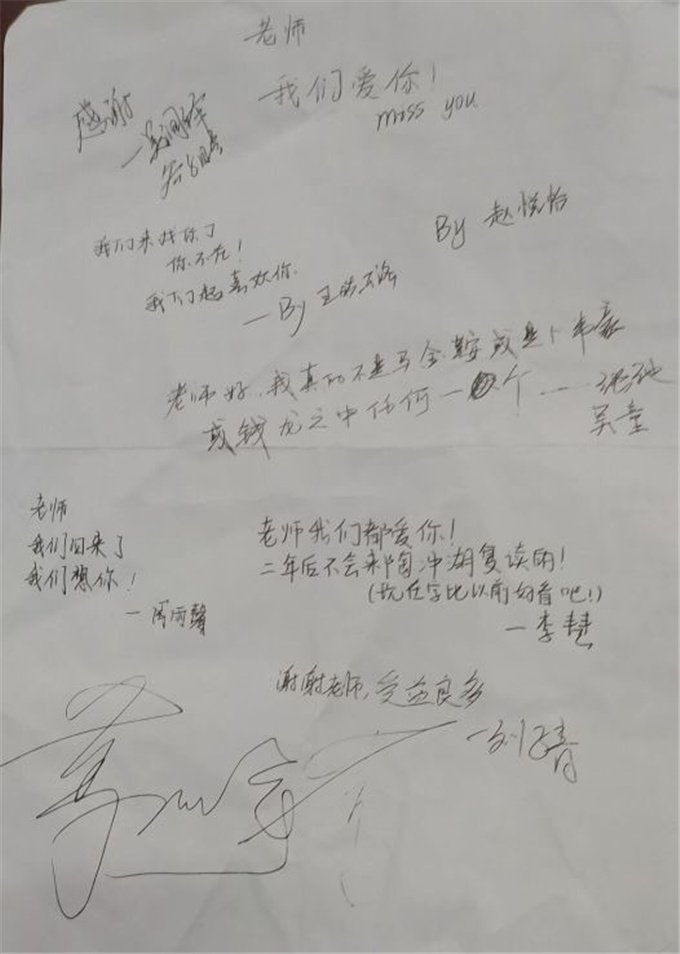 老师
我们爱你！
miss you
感谢
By 赵悦怡
我们来找你了
你不在！
我们超喜欢你
—By 王
老师好，我真的不是马金 或是卜
或钱龙之中任何一个
吴童
老师
我们回来了
我们想你！
—周雨馨
老师我们都爱你！
二年后不会来陶冲湖复读的！
（现在字比以前好看吧！）
—李慧
谢谢老师，受益良多
—刘子青